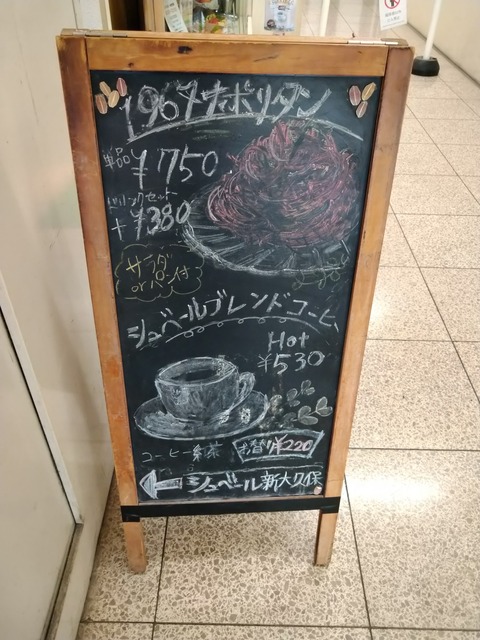 1967ナポリタン
単品 ¥750
ドリンクセット
+¥380
サラダ
orパン付
シュベールブレンドコーヒー
Hot
¥530
コーヒー 紅茶 お替り¥220
← シュベール新大久保